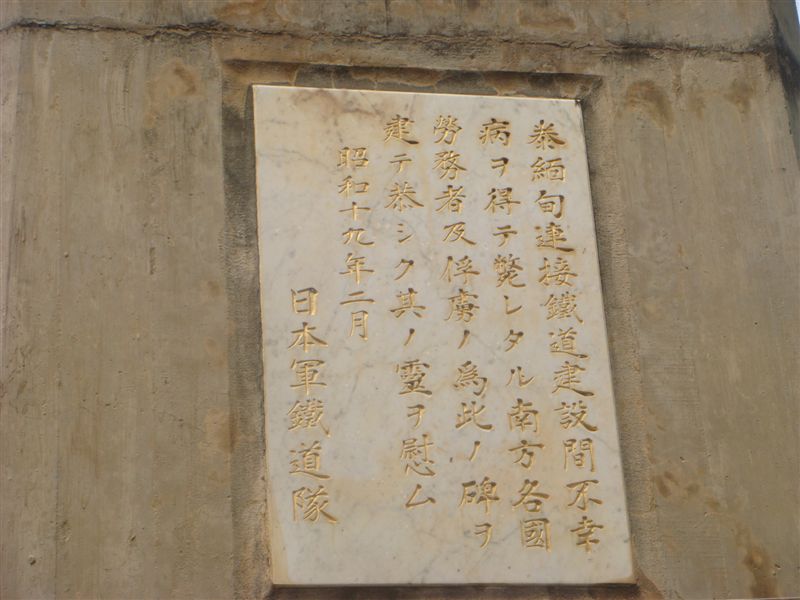 泰緬甸連接鐵道建設間不幸
病ヲ得テ斃レタル南方各國
勞務者及俘虜ノ爲此ノ碑ヲ
建テ恭シク其ノ靈ヲ慰ム
昭和十九年二月
日本軍鐵道隊